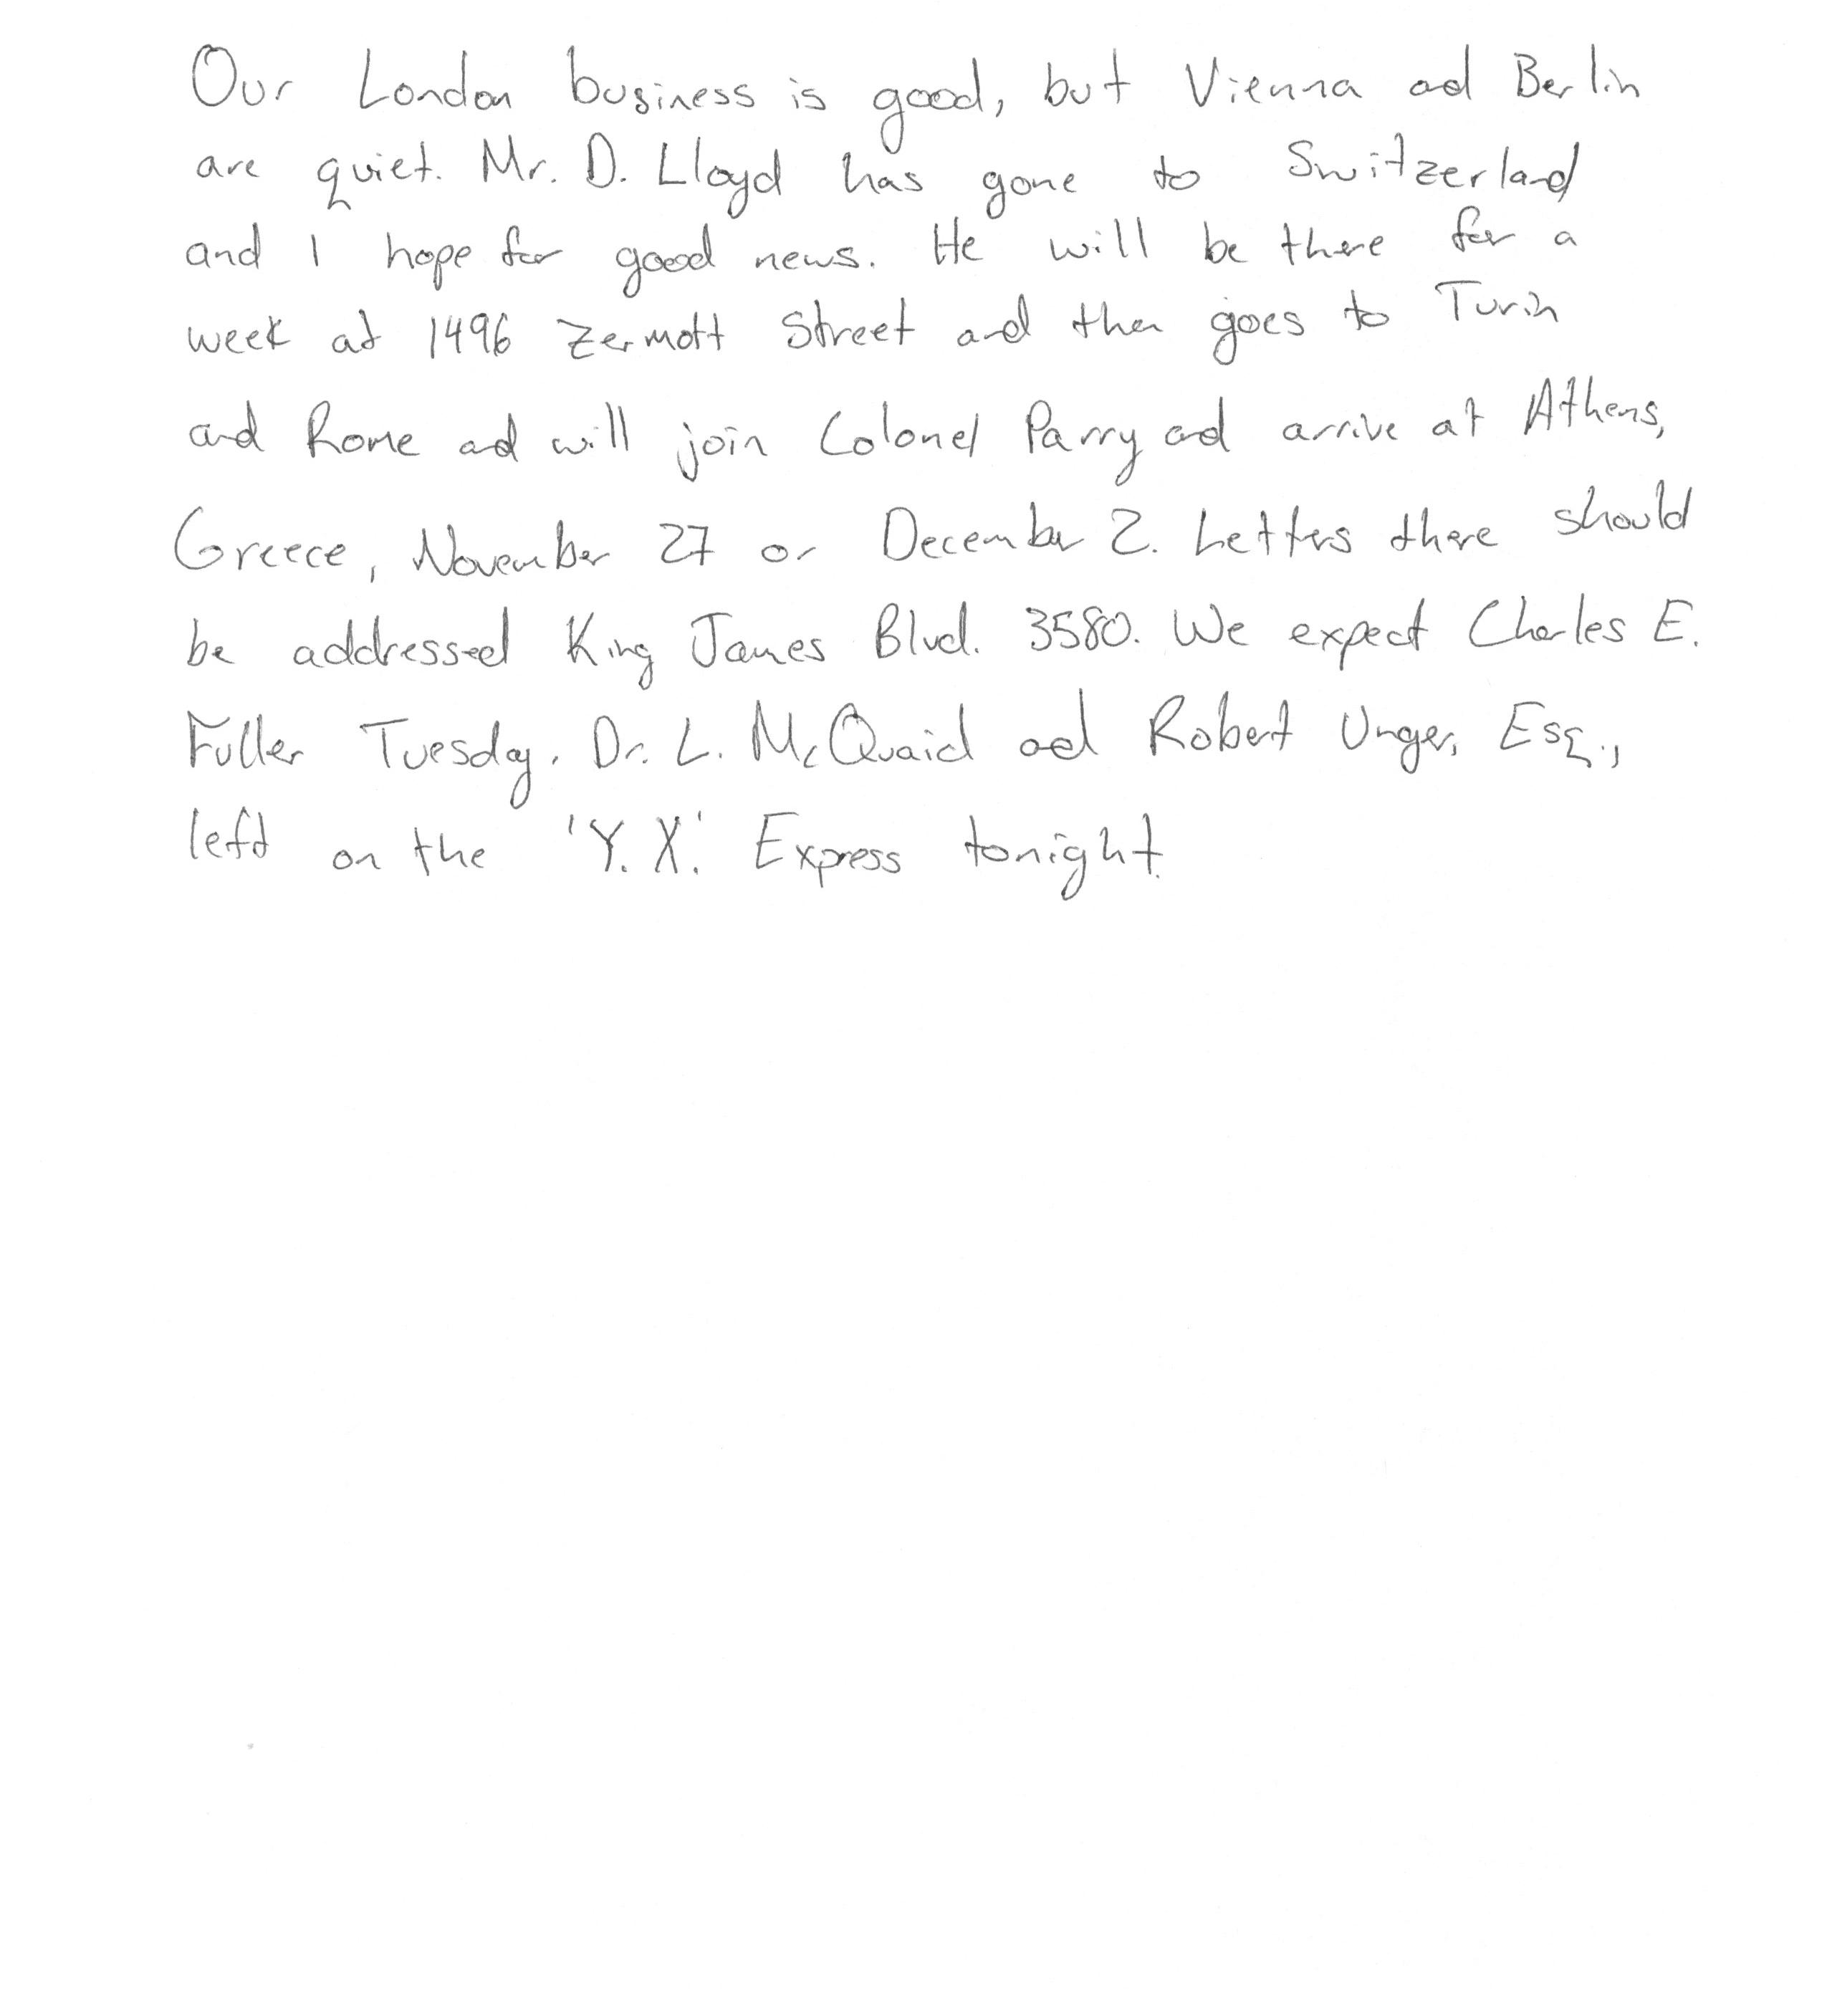 Our London business is good, but Vienna and Berlin
are quiet. Mr. D. Lloyd has gone to Switzerland
and I hope for good news. He will be there for a
week at 1496 Zermott Street and then goes to Turin
and Rome and will join Colonel Parry and arrive at Athens,
Greece, November 27 or December 2. Letters there should
be addressed King James Blvd. 3580. We expect Charles E.
Fuller Tuesday. Dr. L. McQuaid and Robert Unger, Esq.,
left on the 'Y.X.' Express tonight.